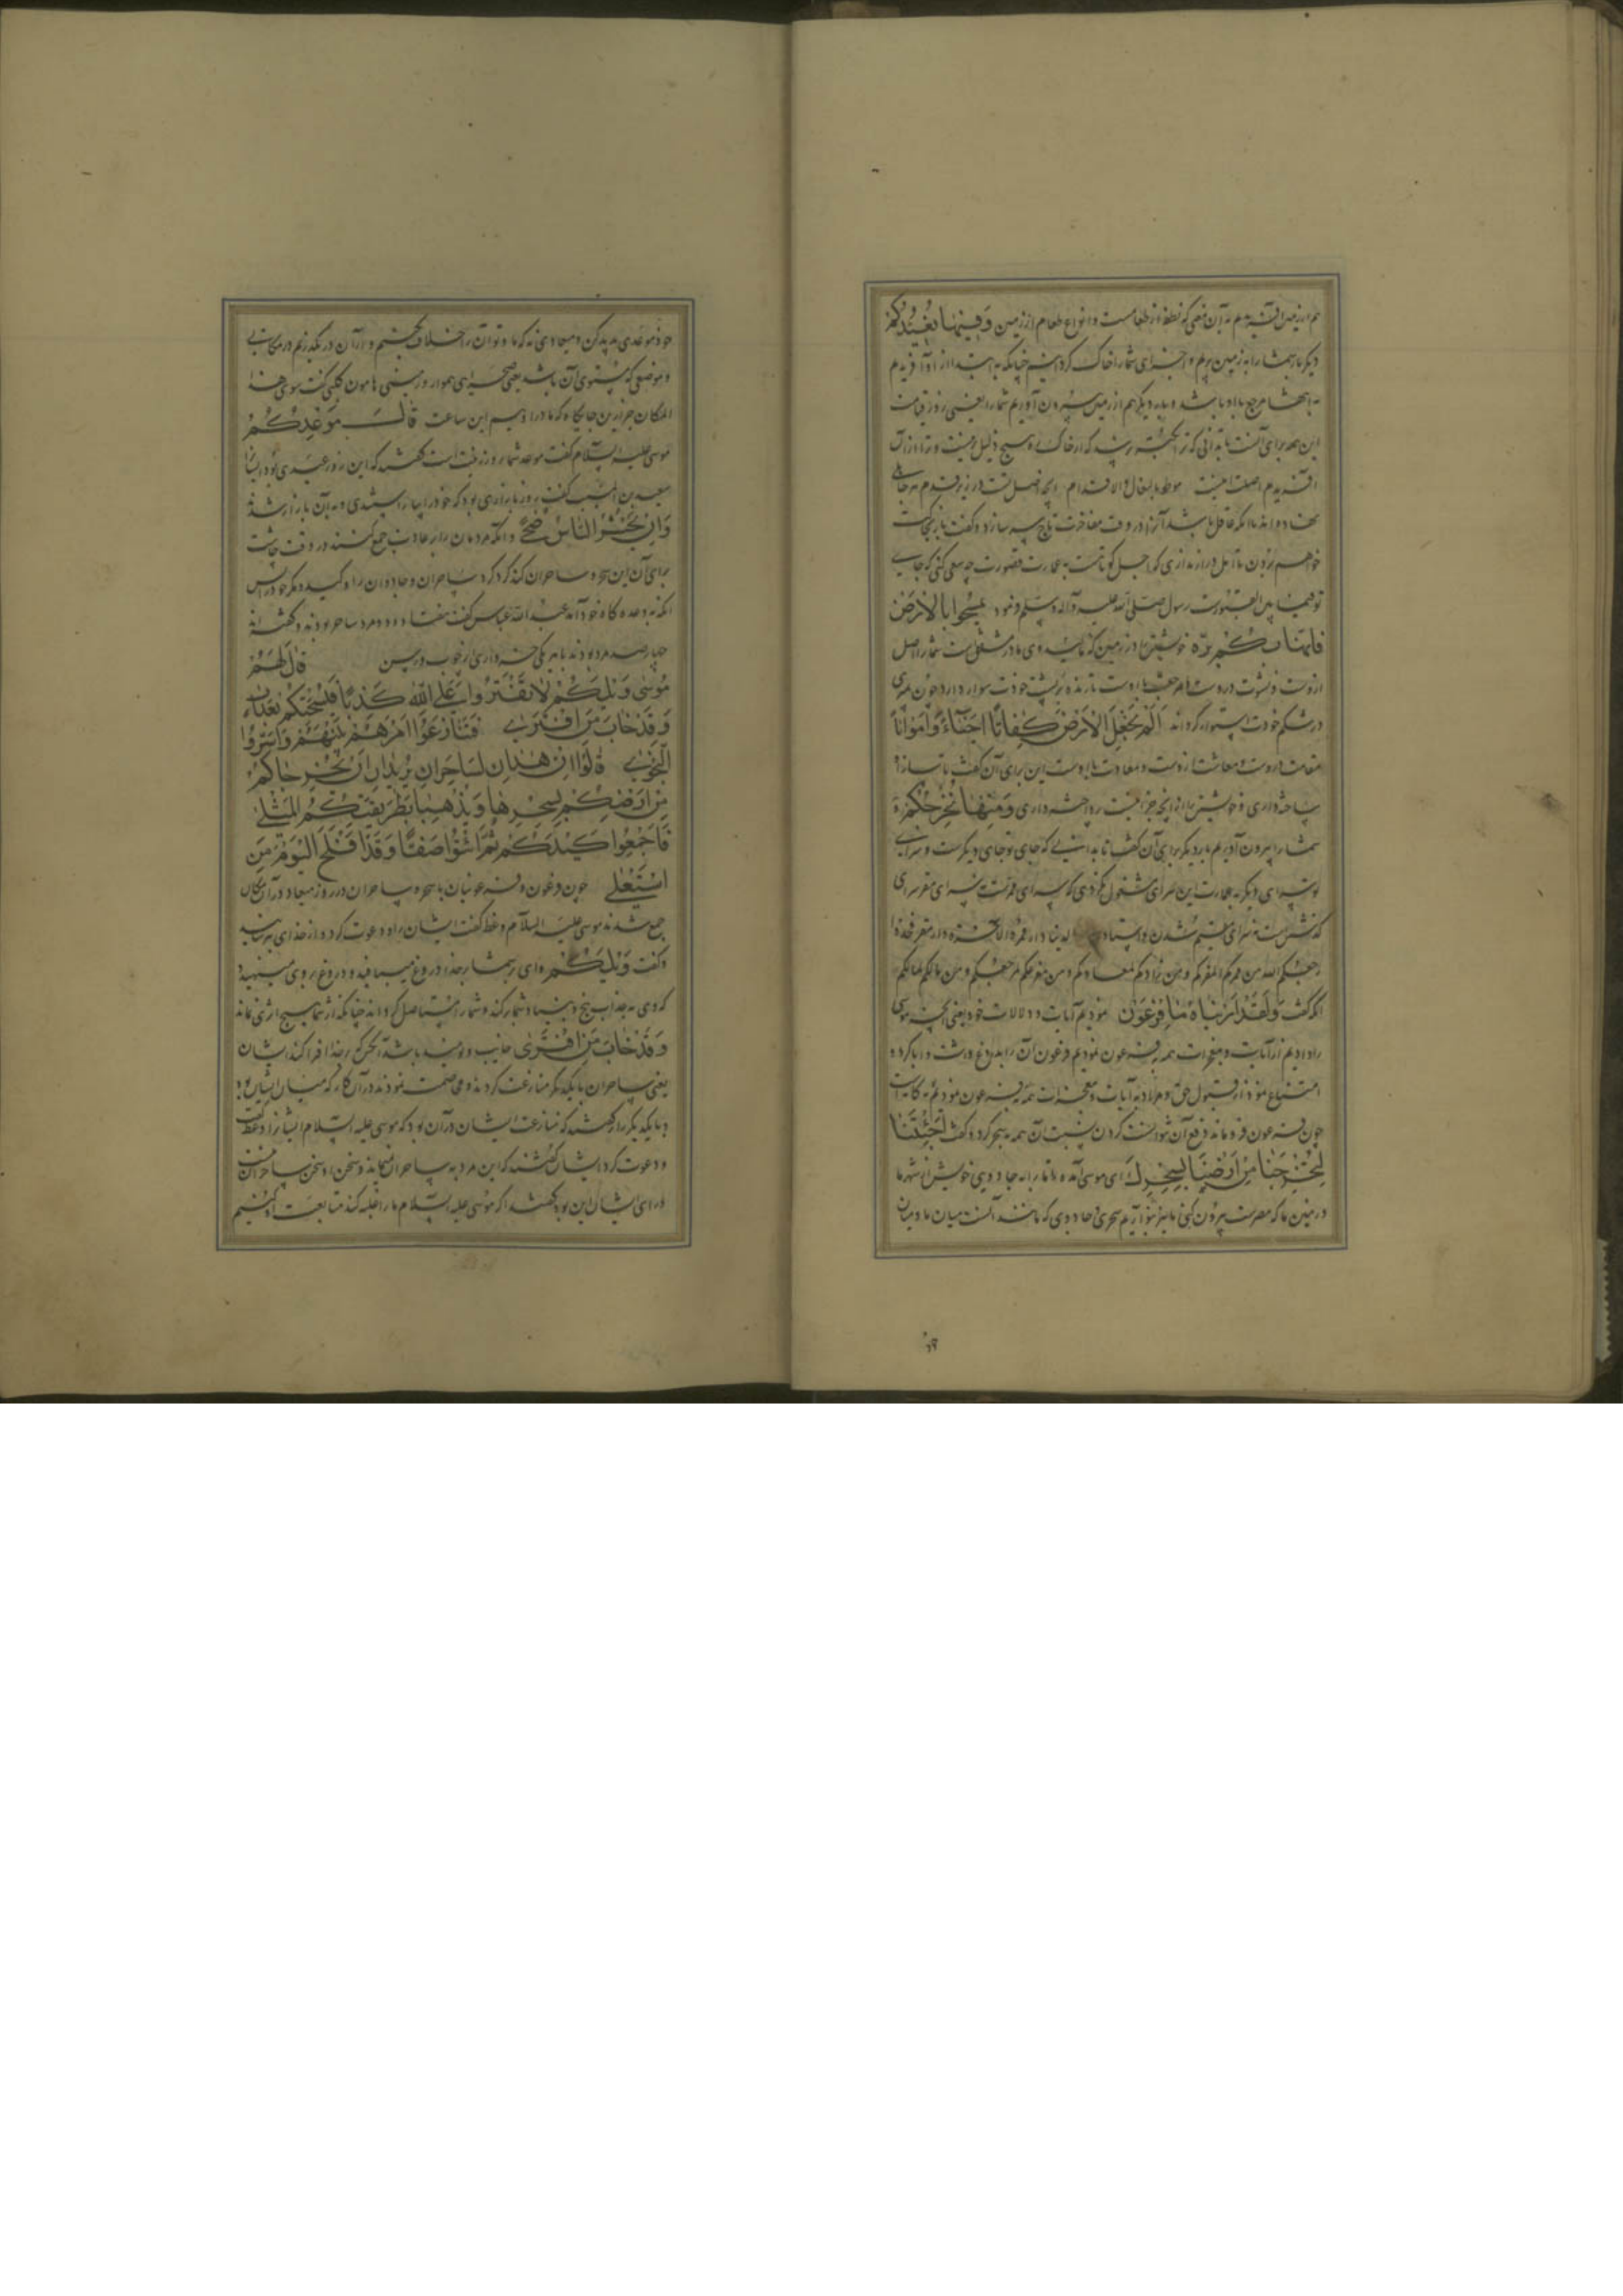 هم از زمین آفریدیم به آن معنی که نطفه از طعامست و انواع طعام از زمین وَفِیهَا نُعِیدُکُمْ
دیگر بار شما را به زمین بریم و اجزای شما را خاک گردانیم چنانکه به ابتدا از او آفریدم
مرجع با او باشد و باره دیگر هم از زمین بیرون آوریم شما را یعنی روز قیامت
این همه برای آنست تا بدانی که از خاک هیچ ذلیل‌تر نیست و ترا از آن
آفریدم اصلت اینست موطوء بالنعال و الاقدام آنچه اصل تست در زیر قدم به جای
نهاده‌اند تا آنکه عاقل باشد آنرا در وقت مفاخرت تاج سر سازد و گفت باز کجات
خواهم بردن تا امل دراز نداری که اجل کوتاهست به عمارت قصورت چه سعی کنی که جای
تو فیما بین القبورست رسول صلی الله علیه و آله و سلم فرمود تمسحوا بالارض
فانها بکم برّة خویشتن را در زمین که مالید وی مادر مشفق است شما را اصل
ازوست و نشوت دروست و مرجعت با اوست تا زنده بر پشت خودت سوار دارد چون بمیری
در شکم خودت استوار گرداند اَلَمْ نَجْعَلِ الْاَرْضَ کِفَاتًا اَحْیَاءً وَاَمْوَاتًا
مقامت دروست و معاشت ازوست و معادت با اوست این برای آن گفت تا
ساخته داری و خویشتن را از آنچه جز اینست رداخته داری وَمِنْهَا نُخْرِجُکُمْ تَارَةً
شما را بیرون آوریم بار دیگر برای آن گفت تا بدانی که جای تو جای دیگرست و سرای
تو سرای دیگر به عمارت این سرای مشغول نگردی که سرای ممرتست نه سرای مقر سرای
گذشتن است نه سرای مقیم شدن الدنیا دار ممر والآخرة دار مقر فخذوا
رحمکم الله من ممرکم لمقرکم و من زادکم لمعادکم و من مفرحکم لمرجعکم و من مالکم لمآلکم
آنگه گفت وَلَقَدْ اَرَیْنَاهُ ما فرعون را نمودیم آیات و دلالات خود یعنی آنچه موسی
را دادیم از آیات و معجزات همه به فرعون نمودیم فرعون آن را بدروغ داشت و ابا کرد و
امتناع نمود از قبول حق و مراد به آیات معجزات همه به فرعون نمودیم
چون فرعون فروماند دفع آن نتوانست کردن نسبت آن همه به سحر کرد و گفت اَجِئْتَنَا
لِتُخْرِجَنَا مِنْ اَرْضِنَا بِسِحْرِکَ ای موسی آمده تا ما را به جادویی خویش از شهر ما
و زمین ما که مصرست بیرون کنی ما نیز بتو آریم سحری و جادوی که مانند آنست میان ما و میان
خود موعدی پدید کن و میعادی نه که ما و تو آن را خلاف نکنیم و از آن در نگذریم در مکانی
و موضعی که مستوی آن باشد یعنی صحرای هموار و زمینی هامون کلبی گفت سوی هذا
المکان جز این جایگاه که ما در اوییم این ساعت قَالَ مَوْعِدُکُمْ
موسی علیه السلام گفت موعد شما روز زینت است گفتند که این روز عیدی بود ایشان را
سعید بن المسیب گفت روز بازاری بود که خود را بیاراستندی و به آن بازار شدند
وَاَنْ یُحْشَرَ النَّاسُ ضُحًی و آنگه مردمان را بر عادت جمع کنند در وقت چاشت
برای آن این سحره و ساحران کند گرد کرد ساحران و جادوان را و کید و مکر خود را پس
آنگه به وعده گاه خود آمد عبد الله عباس گفت هفتاد و دو مرد ساحر بودند و گفته‌اند
چهارصد مرد بودند با هر یکی خرواری از چوب و رسن قَالَ لَهُمْ
مُوسَی وَیْلَکُمْ لَا تَفْتَرُوا عَلَی اللهِ کَذِبًا فَیُسْحِتَکُمْ بِعَذَابٍ
وَقَدْ خَابَ مَنِ افْتَرَی فَتَنَازَعُوا اَمْرَهُمْ بَیْنَهُمْ وَاَسَرُّوا
النَّجْوَی قَالُوا اِنْ هٰذَانِ لَسَاحِرَانِ یُرِیدَانِ اَنْ یُخْرِجَاکُمْ
مِنْ اَرْضِکُمْ بِسِحْرِهِمَا وَیَذْهَبَا بِطَرِیقَتِکُمُ الْمُثْلَی
فَاَجْمِعُوا کَیْدَکُمْ ثُمَّ ائْتُوا صَفًّا وَقَدْ اَفْلَحَ الْیَوْمَ مَنِ
اسْتَعْلَی چون فرعون و فرعونیان با سحره و ساحران در روز میعاد در آن مکان
جمع شدند موسی علیه السلام وعظ گفت ایشان را و دعوت کرد و از خدای بترسانید
و گفت وَیْلَکُمْ وای بر شما بر خدا دروغ میبافید و دروغ بر وی مینهید
که وی به عذاب بیخ و بنیاد شما بر کند و شما را مستاصل گرداند چنانکه از شما هیچ اثری نماند
وَقَدْ خَابَ مَنِ افْتَرَی خایب و نومید باشد آنکس که بر خدا افترا کند ایشان
یعنی ساحران با یکدیگر منازعت کردند و مخاصمت نمودند در آن کار که میان ایشان بود
و با یکدیگر راز گفتند که منازعت ایشان در آن بود که موسی علیه السلام ایشانرا وعظ گفت
و دعوت کرد ایشان گفتند که این مرد به ساحران نمیماند و سخن او سخن ساحران نیست
و رای ایشان این بود گفتند اگر موسی علیه السلام ما را غلبه کند متابعت او کنیم